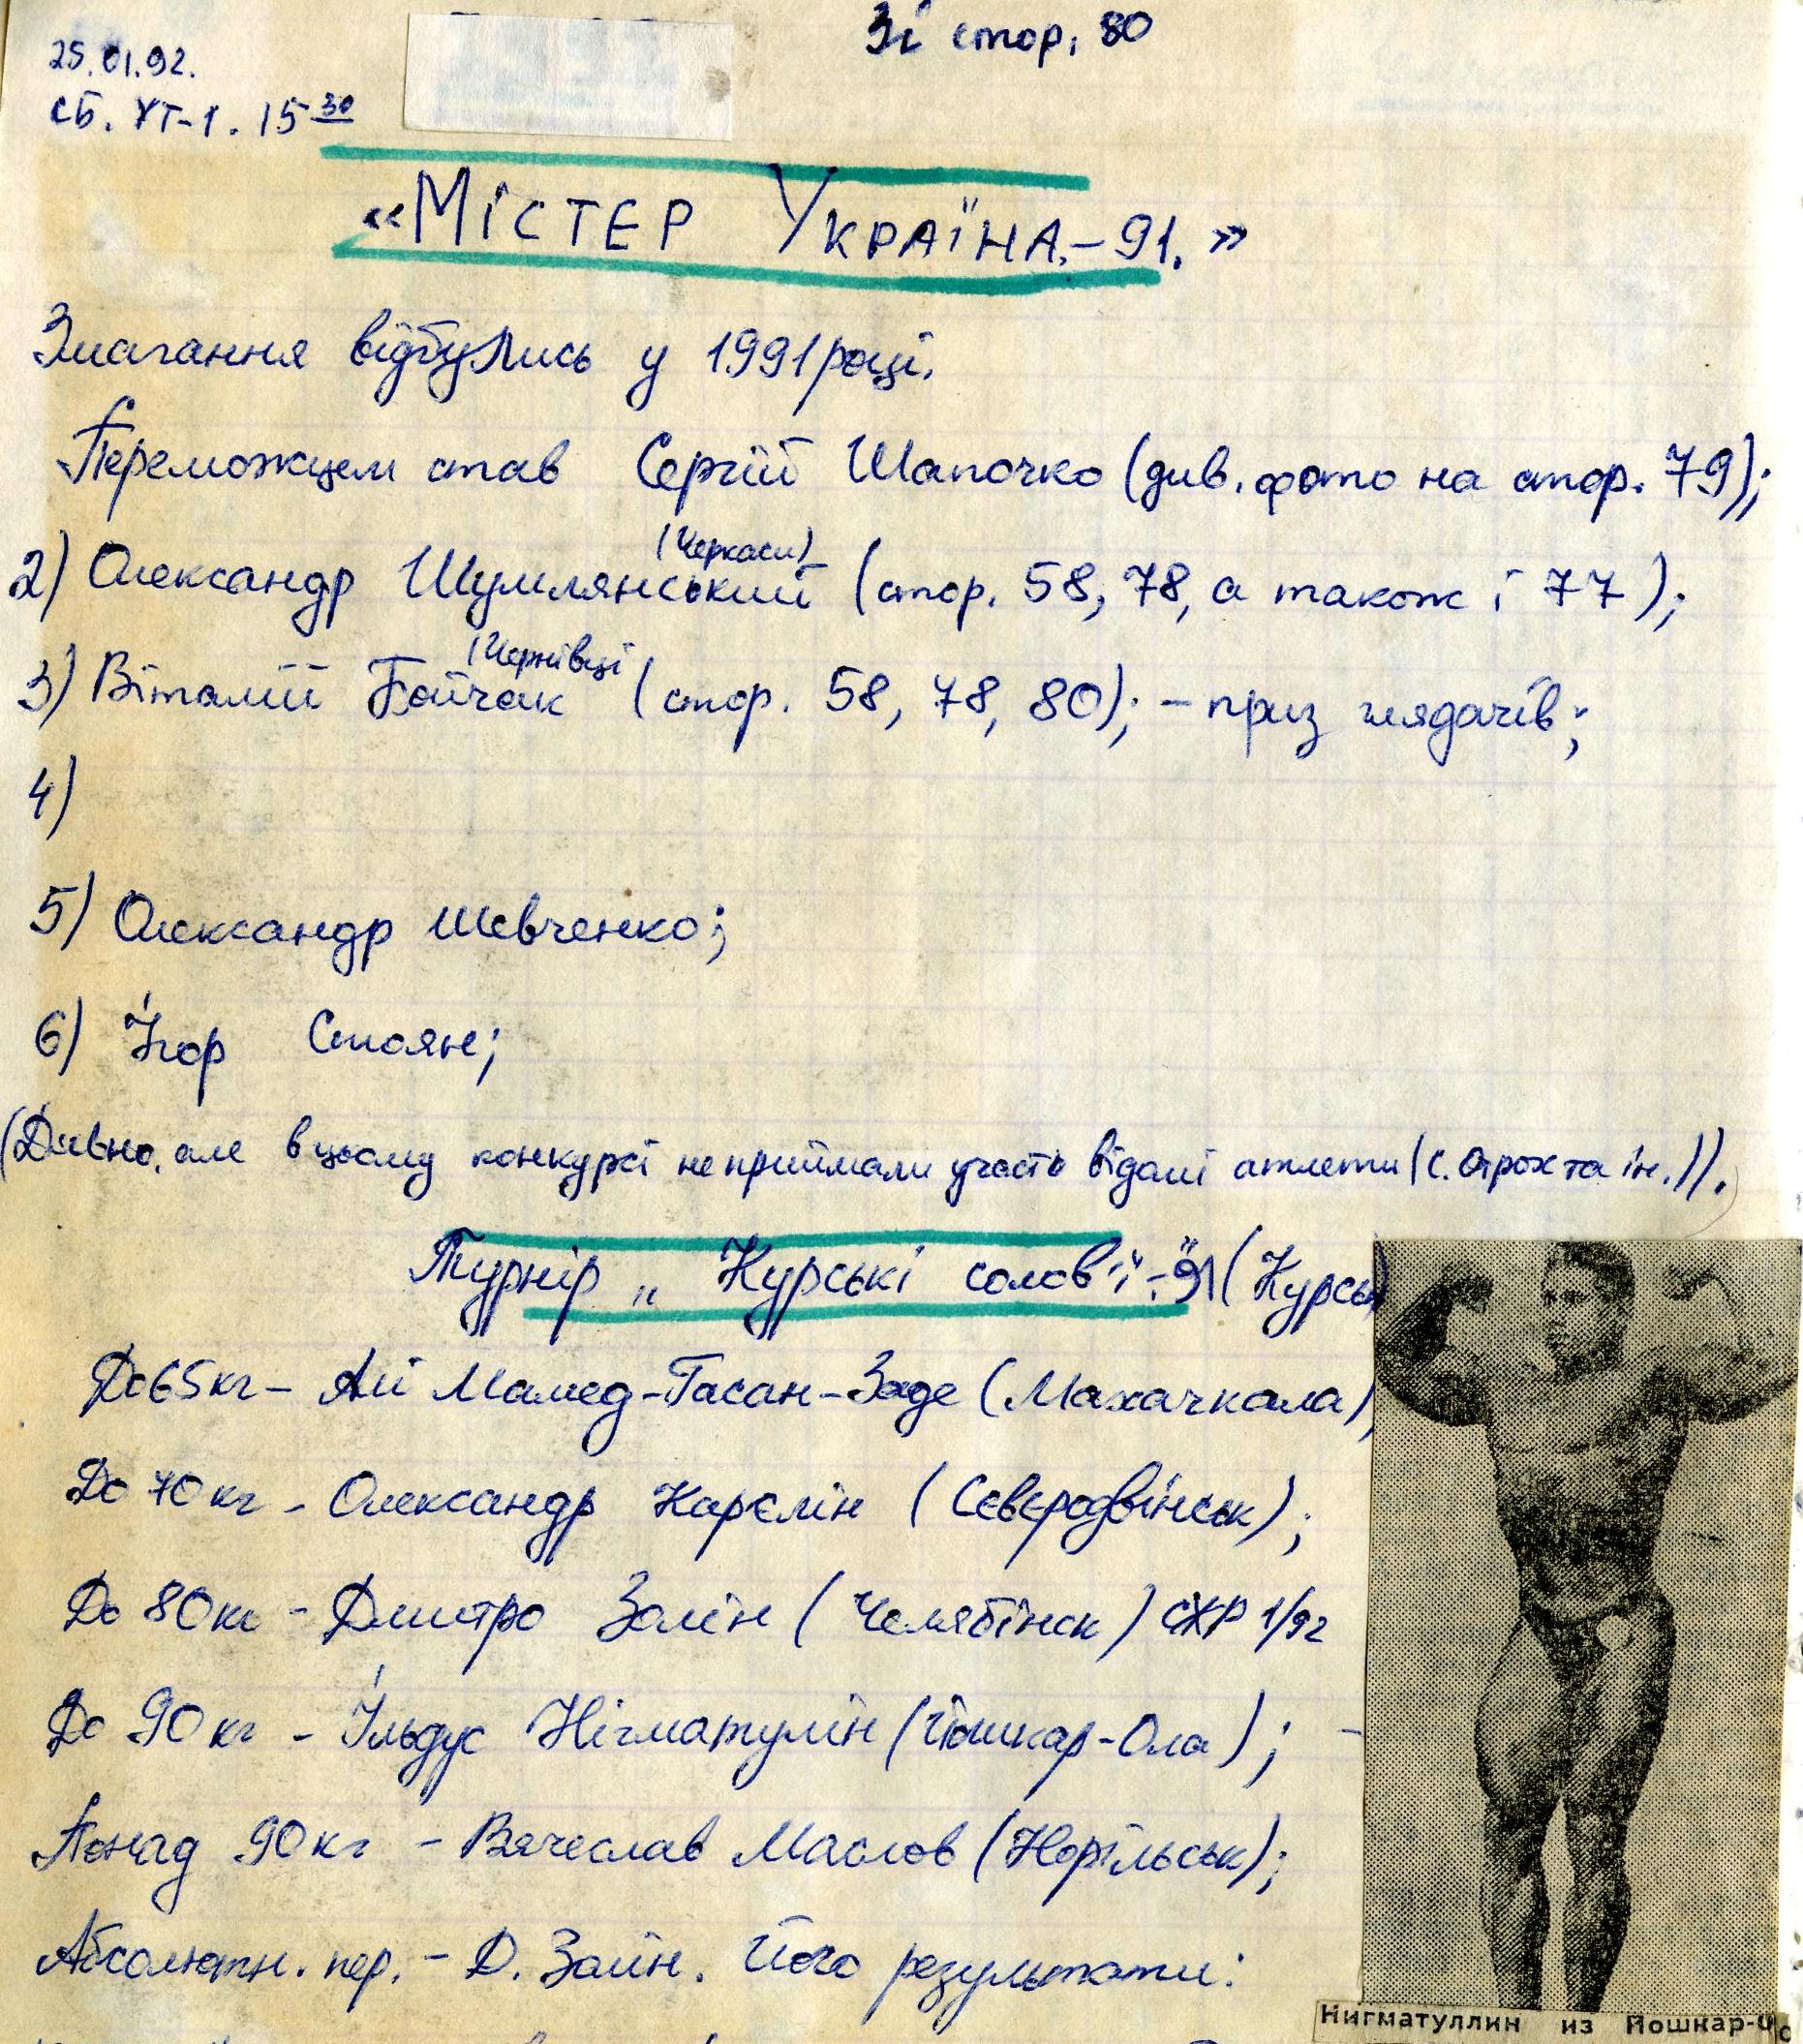 Зі стор. 80
25.01.92.
сб. УТ-1. 15 30
«Містер Україна.-91.»
Змагання відбулись у 1991 році.
Переможцем став Сергій Шапочко (див. фото на стор. 79);
(Черкаси)
2) Олександр Шумлянський (стор. 58, 78, а також і 77);
(Чернівці
3) Віталій Бойчак (стор. 58, 78, 80); - приз глядачів;
4)
5) Олександр Шевченко;
6) Ігор Стоян;
(Дивно, але в цьому конкурсі не приймали участь відомі атлети (С. Отрох та ін.)).
Турнір „Курські солов'ї"-91 (Курськ)
До 65 кг - Алі Мамед-Гасан-Заде (Махачкала)
До 70 кг - Олександр Карелін (Сєвєродвінськ);
До 80 кг - Дмитро Золін (Челябінск) СЖР 1/92
До 90 кг - Ільдус Нігматулін (Йошкар-Ола); -
Понад 90 кг - Вячеслав Маслов (Норільськ);
Абсолютн. пер. - Д. Золін. Його результати:
Нигматуллин из Йошкар-О